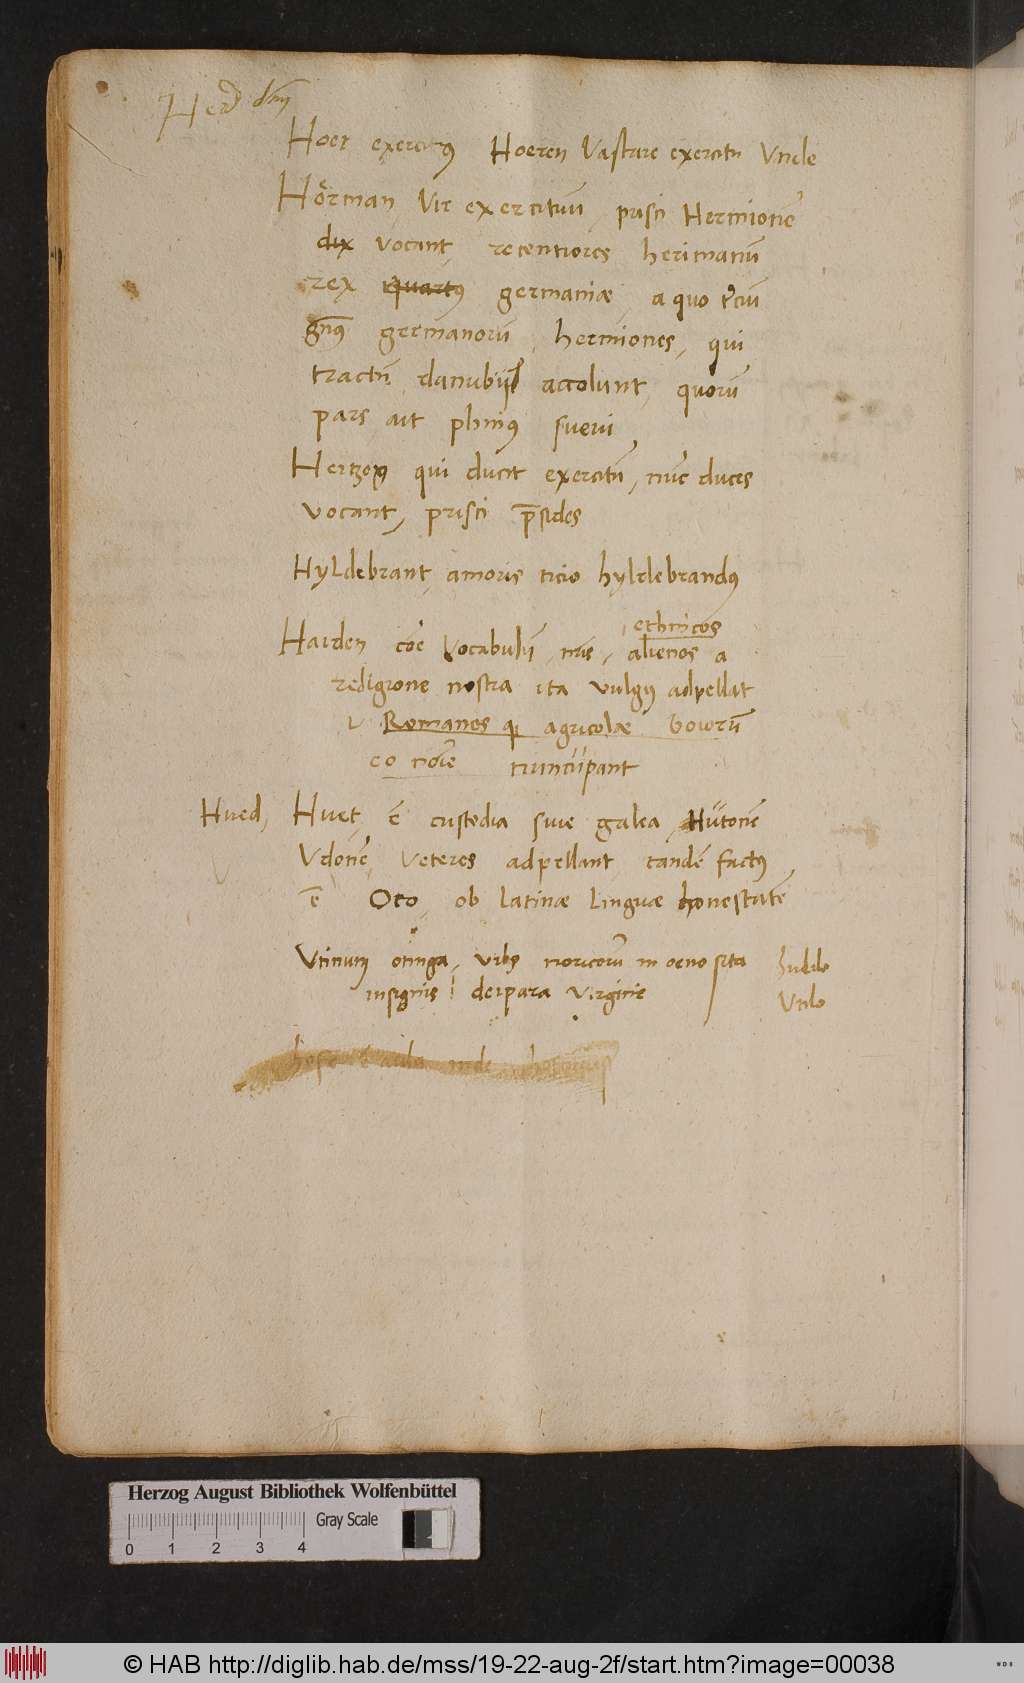 Hoer exercitꝰ Hoeren Vastare exercitū Vnde
Hörman, Vir exercituū, prisci Hermionē
dix vocant, recentiores herimanū
rex quartꝰ germaniæ, a quo t̄ciū
gn̄ꝰ germanorū, hermiones, qui
tractū danubij accolunt, quorū
pars ait plinius suevi
Hertzog qui ducit exercitū, nūc duces
vocant, prisci p̄sides
Hyldebrant, amoris ticio hyldebrandꝰ
ethnicos
Haiden cōe Vocabulū nr̄is, alienos a
religione nostra ita vulgꝰ adpellat
Romanos qꝫ agricolæ boiorū
eo nōie nuncupant
Hued, Huet, ē custodia sive galea, Hutonē
Vdonē, Veteres adpellant, tandē factꝰ
ē Oto, ob latinæ linguæ honestatē
Vtinum otinga, vrbs noricorū in oeno sita
hudilo
insignis deipara virgine
Vtilo
Herzog August Bibliothek Wolfenbüttel
Gray Scale
0 1 2 3 4
© HAB http://diglib.hab.de/mss/19-22-aug-2f/start.htm?image=00038